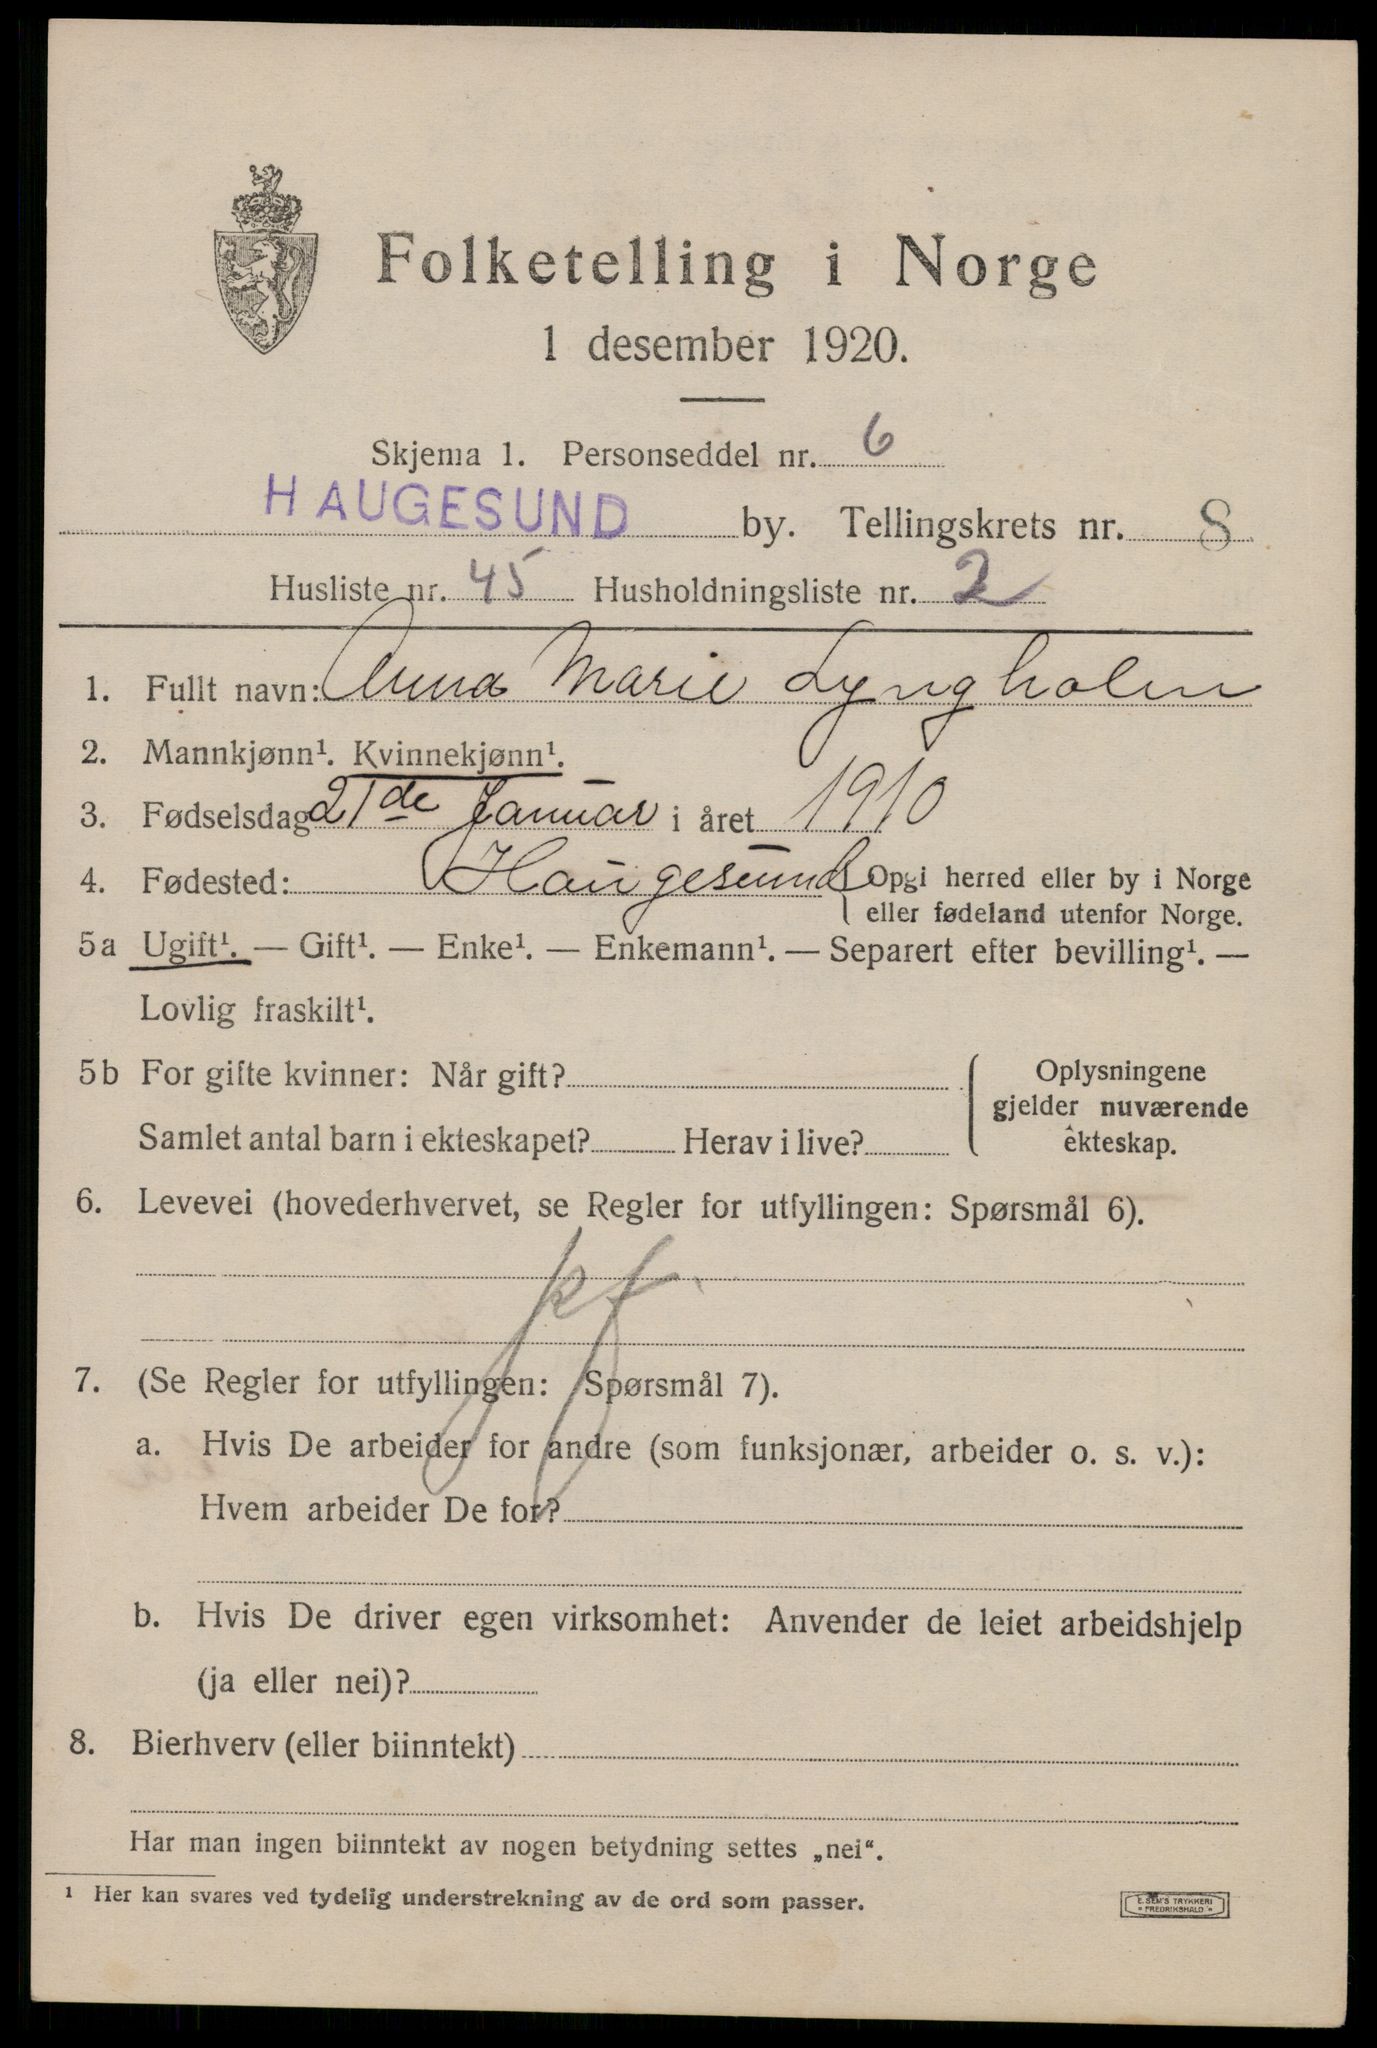 Folketelling i Norge
1 desember 1920.
Skjema 1. Personseddel nr. 6
HAUGESUND by. Tellingskrets nr. 8
Husliste nr. 45 Husholdningsliste nr. 2
1. Fullt navn: Anna Marie Lyngholm
2. Mannkjønn¹. Kvinnekjønn¹.
3. Fødselsdag 21de Januar i året 1910
4. Fødested: Haugesund { Opgi herred eller by i Norge
eller fødeland utenfor Norge.
5a Ugift¹. — Gift¹. — Enke¹. — Enkemann¹. — Separert efter bevilling¹. —
Lovlig fraskilt¹.
5b For gifte kvinner: Når gift?
Samlet antal barn i ekteskapet? Herav i live?
Oplysningene
gjelder nuværende
ekteskap.
6. Levevei (hovederhvervet, se Regler for utfyllingen: Spørsmål 6).
7. (Se Regler for utfyllingen: Spørsmål 7).
a. Hvis De arbeider for andre (som funksjonær, arbeider o. s. v.):
Hvem arbeider De for?
b. Hvis De driver egen virksomhet: Anvender de leiet arbeidshjelp
(ja eller nei)?
8. Bierhverv (eller biinntekt)
Har man ingen biinntekt av nogen betydning settes „nei“.
¹ Her kan svares ved tydelig understrekning av de ord som passer.
E. SEM'S TRYKKERI
FREDRIKSHALD